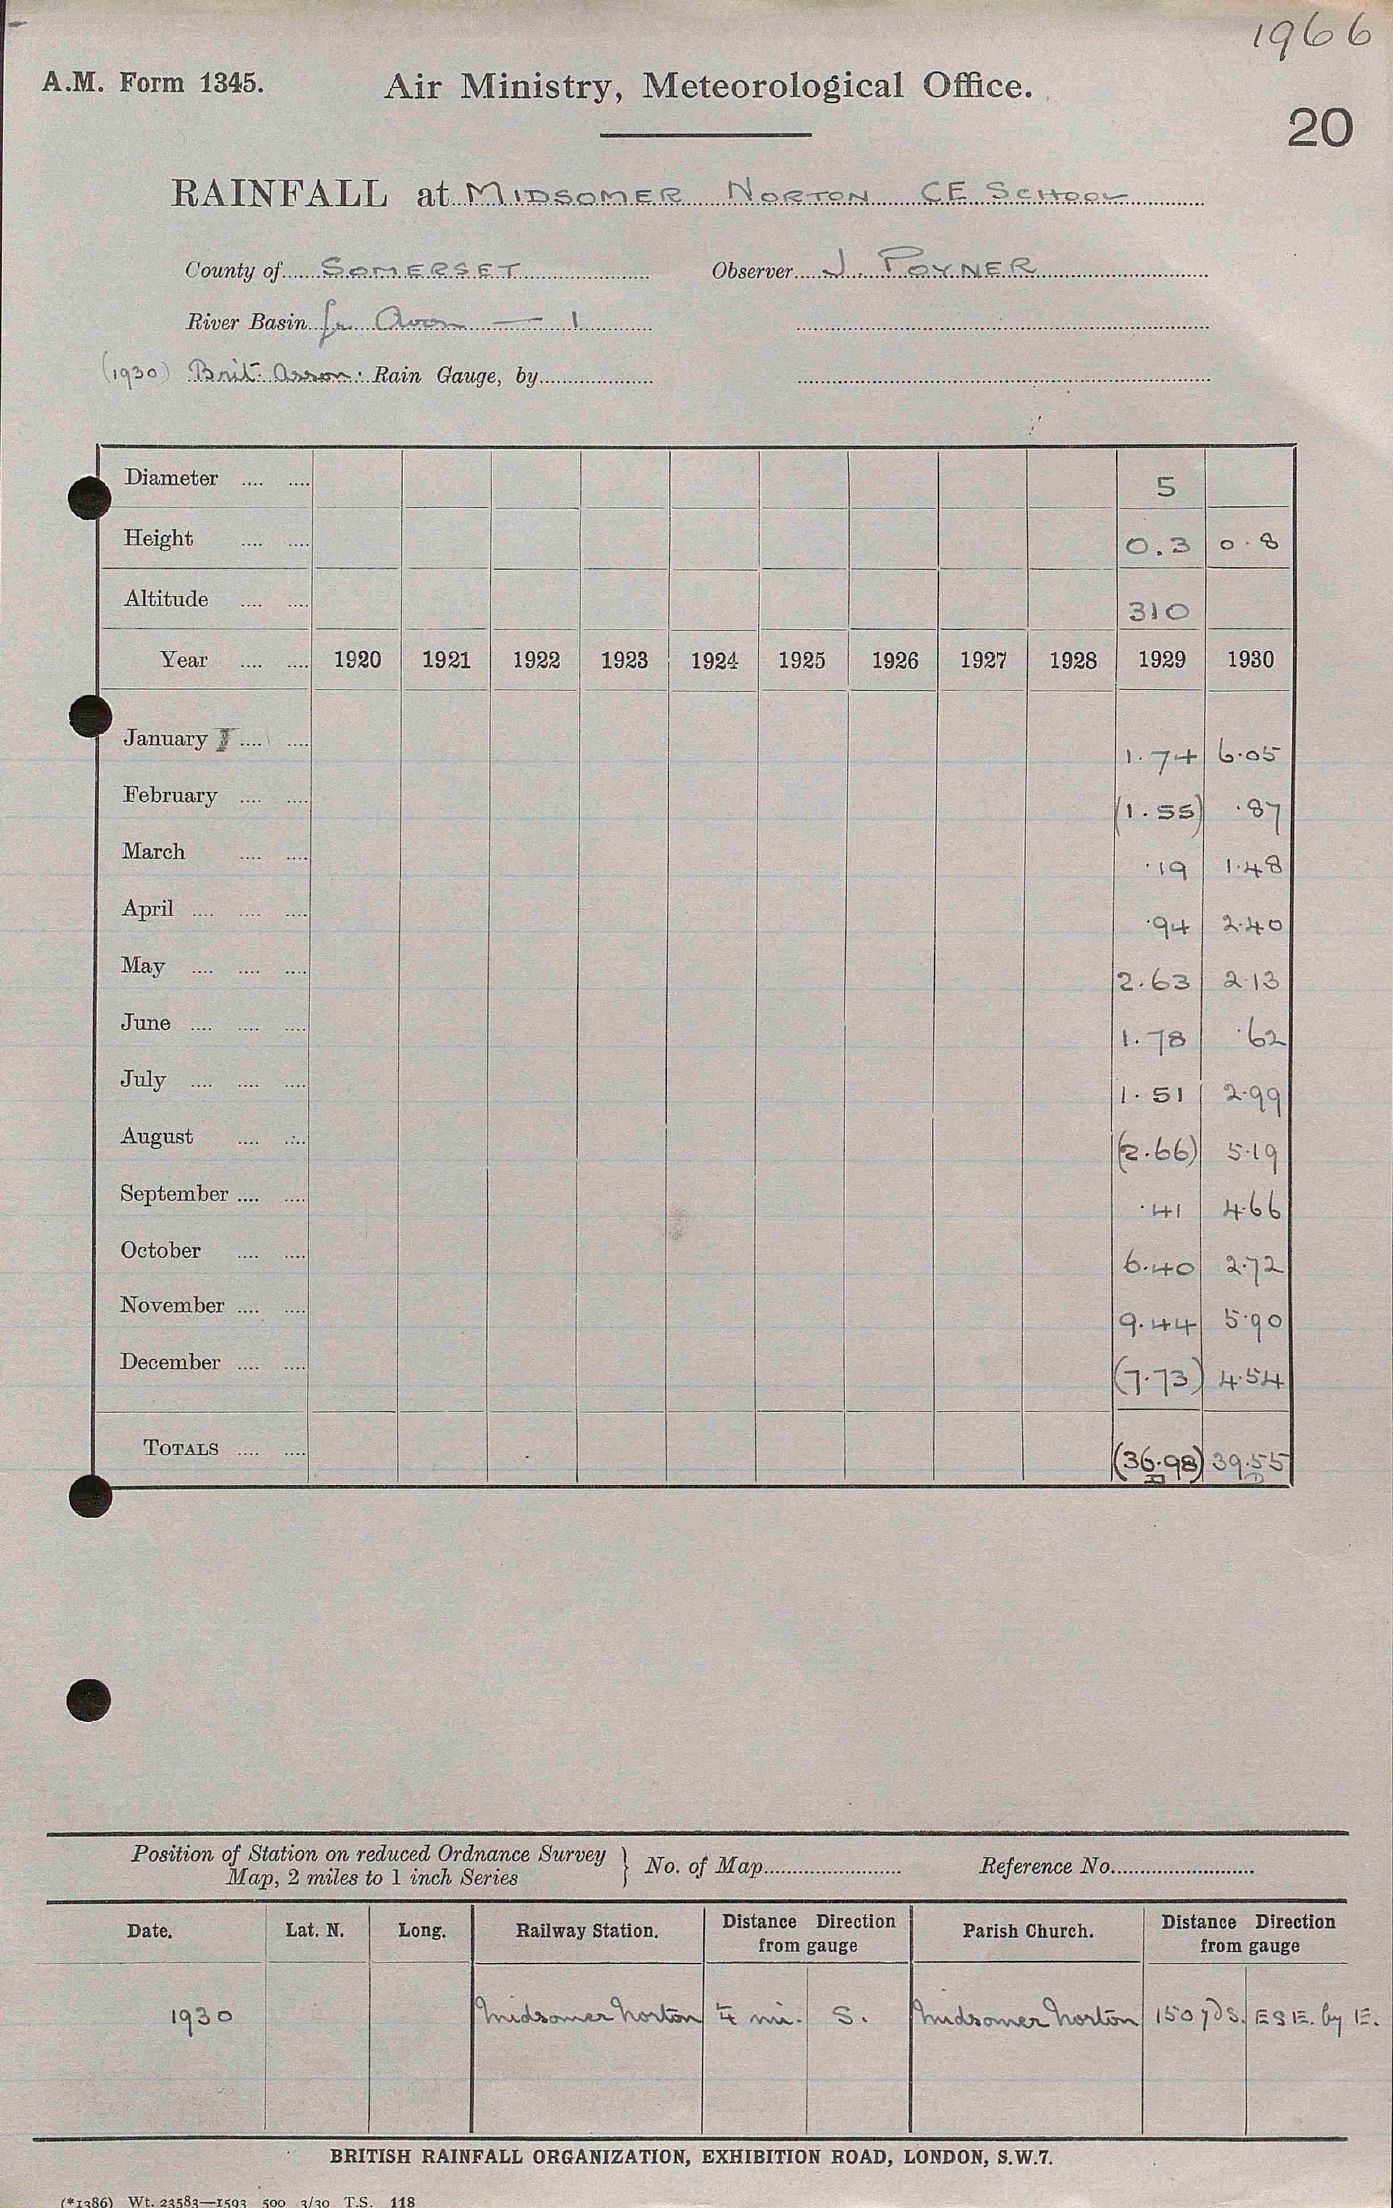 1966
A.M. Form 1345. Air Ministry, Meteorological Office.
20
RAINFALL at MIDSOMER NORTON CE SCHOOL
County of SOMERSET Observer J. POYNER
River Basin Avon — 1
(1930) Brit. Asson. Rain Gauge, by
Diameter .... .... 5
Height .... .... 0.3 0.8
Altitude .... .... 310
Year .... .... 1920 1921 1922 1923 1924 1925 1926 1927 1928 1929 1930
January .... .... 1.74 6.05
February .... .... (1.55) .87
March .... .... .19 1.48
April .... .... .... .94 2.40
May .... .... .... 2.63 2.13
June .... .... .... 1.78 .62
July .... .... .... 1.51 2.99
August .... .... (2.66) 5.19
September .... .... .41 4.66
October .... .... 6.40 2.72
November .... .... 9.44 5.90
December .... .... (7.73) 4.54
TOTALS .... .... (36.98) 39.55
Position of Station on reduced Ordnance Survey
Map, 2 miles to 1 inch Series } No. of Map Reference No.
Date. Lat. N. Long. Railway Station. Distance Direction from gauge Parish Church. Distance Direction from gauge
1930 Midsomer Norton mi. S. Midsomer Norton 150 yds. ESE. by E.
BRITISH RAINFALL ORGANIZATION, EXHIBITION ROAD, LONDON, S.W.7.
(*1386) Wt. 23583—1593 500 3/30 T.S. 118